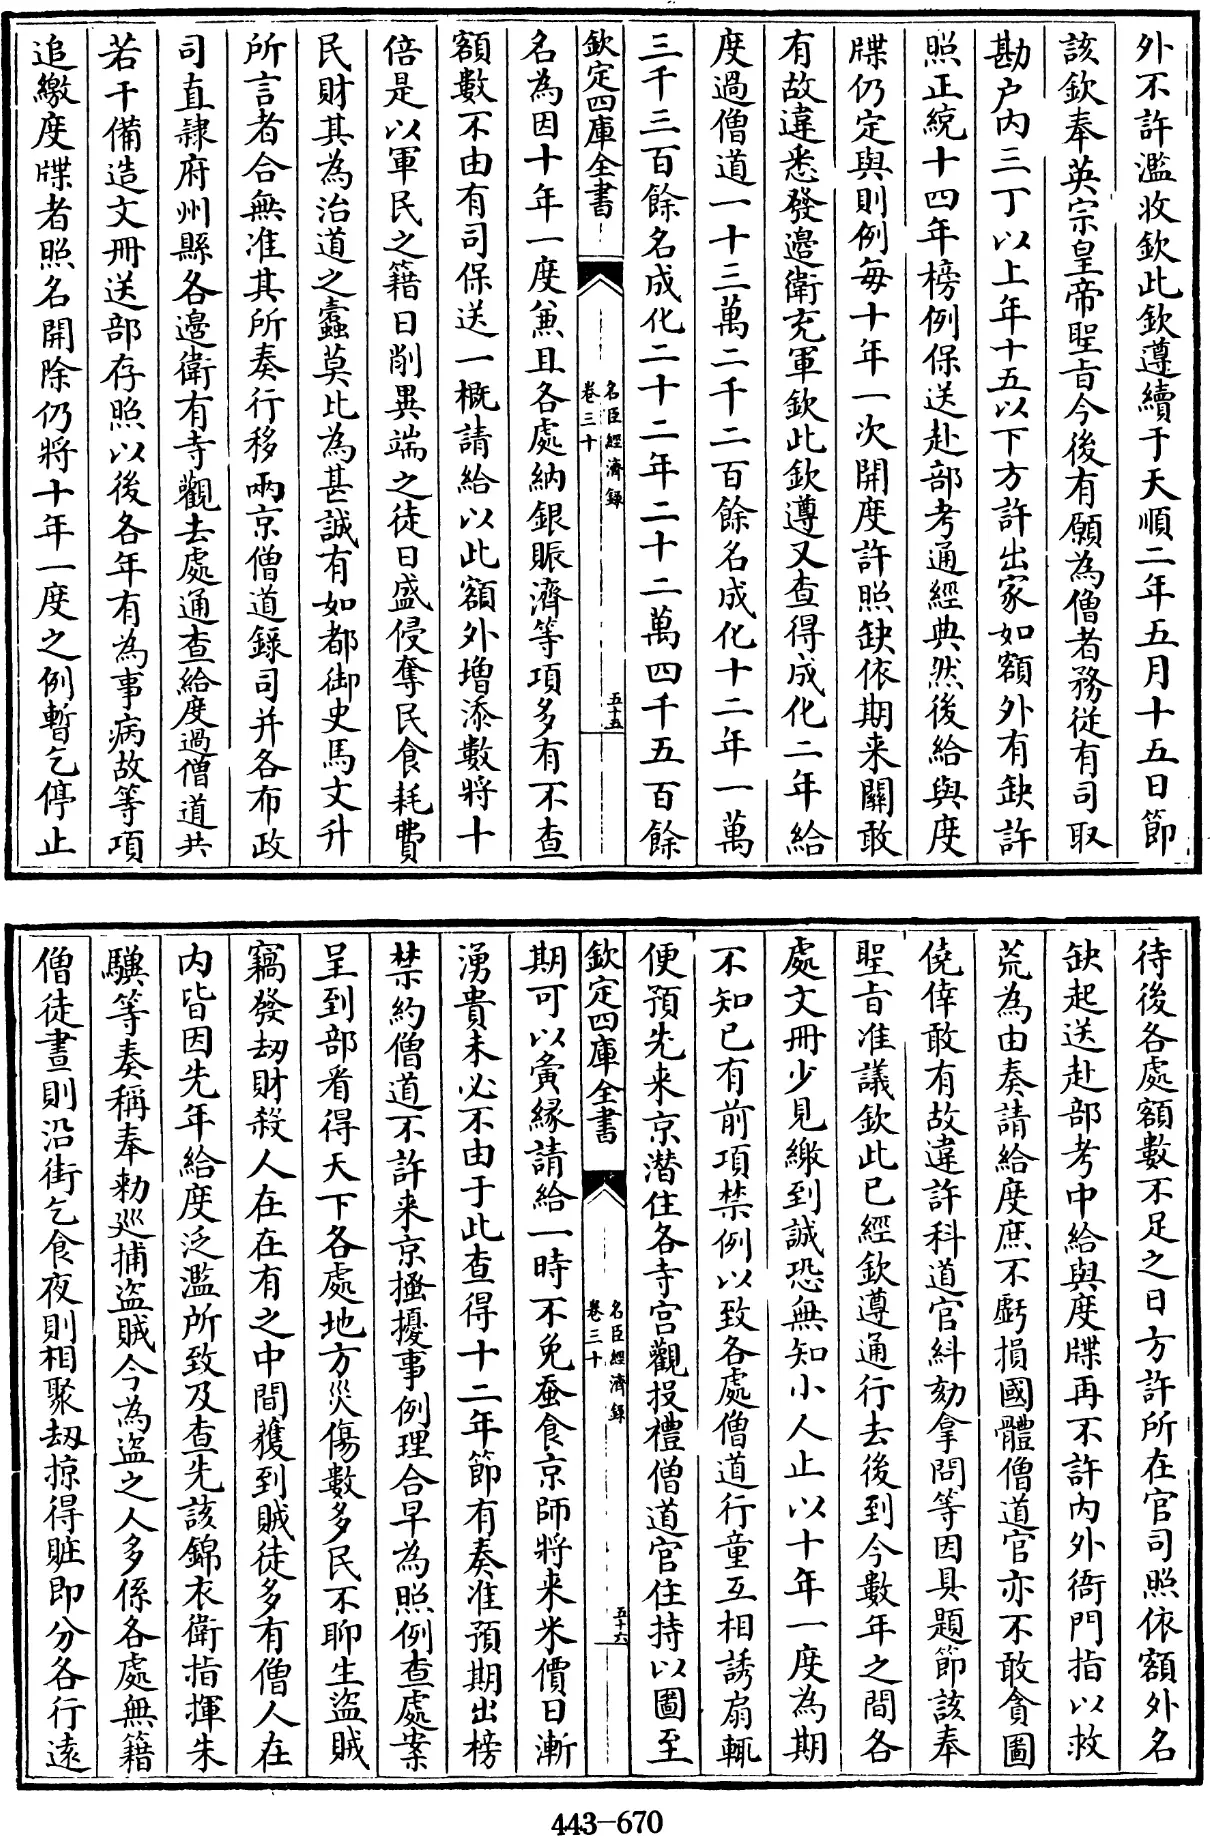 外不許濫收欽此欽遵續于天順二年五月十五日節
該欽奉英宗皇帝聖旨今後有願為僧者務從有司取
勘户内三丁以上年十五以下方許出家如額外有缺許
照正統十四年榜例保送赴部考通經典然後給與度
牒仍定與則例每十年一次開度許照缺依期来關敢
有故違悉發邊衛充軍欽此欽遵又查得成化二年給
度過僧道一十三萬二千二百餘名成化十二年一萬
三千三百餘名成化二十二年二十二萬四千五百餘
欽定四庫全書
名臣經濟録
卷三十
五十五
名為因十年一度兼且各處納銀賑濟等項多有不查
額數不由有司保送一概請給以此額外增添數將十
倍是以軍民之籍日削異端之徒日盛侵奪民食耗費
民財其為治道之蠹莫比為甚誠有如都御史馬文升
所言者合無准其所奏行移兩京僧道錄司并各布政
司直隷府州縣各邊衛有寺觀去處通查給度過僧道共
若干備造文冊送部存照以後各年有為事病故等項
追繳度牒者照名開除仍將十年一度之例暫乞停止
待後各處額數不足之日方許所在官司照依額外名
缺起送赴部考中給與度牒再不許内外衙門指以救
荒為由奏請給度庶不虧損國體僧道官亦不敢貪圖
僥倖敢有故違許科道官糾劾拿問等因具題節該奉
聖旨准議欽此已經欽遵通行去後到今數年之間各
處文冊少見繳到誠恐無知小人止以十年一度為期
不知已有前項禁例以致各處僧道行童互相誘扇輒
便預先来京潜住各寺宫觀投禮僧道官住持以圖至
欽定四庫全書
名臣經濟録
卷三十
五十六
期可以夤縁請給一時不免蚕食京師將来米價日漸
湧貴未必不由于此查得十二年節有奏准預期出榜
禁約僧道不許来京搔擾事例理合早為照例查處案
呈到部看得天下各處地方災傷數多民不聊生盜賊
竊發刼財殺人在在有之中間獲到賊徒多有僧人在
内皆因先年給度泛濫所致及查先該錦衣衛指揮朱
驥等奏稱奉勑巡捕盜賊今為盜之人多係各處無籍
僧徒晝則沿街乞食夜則相聚刼掠得贓即分各行遠
443-670